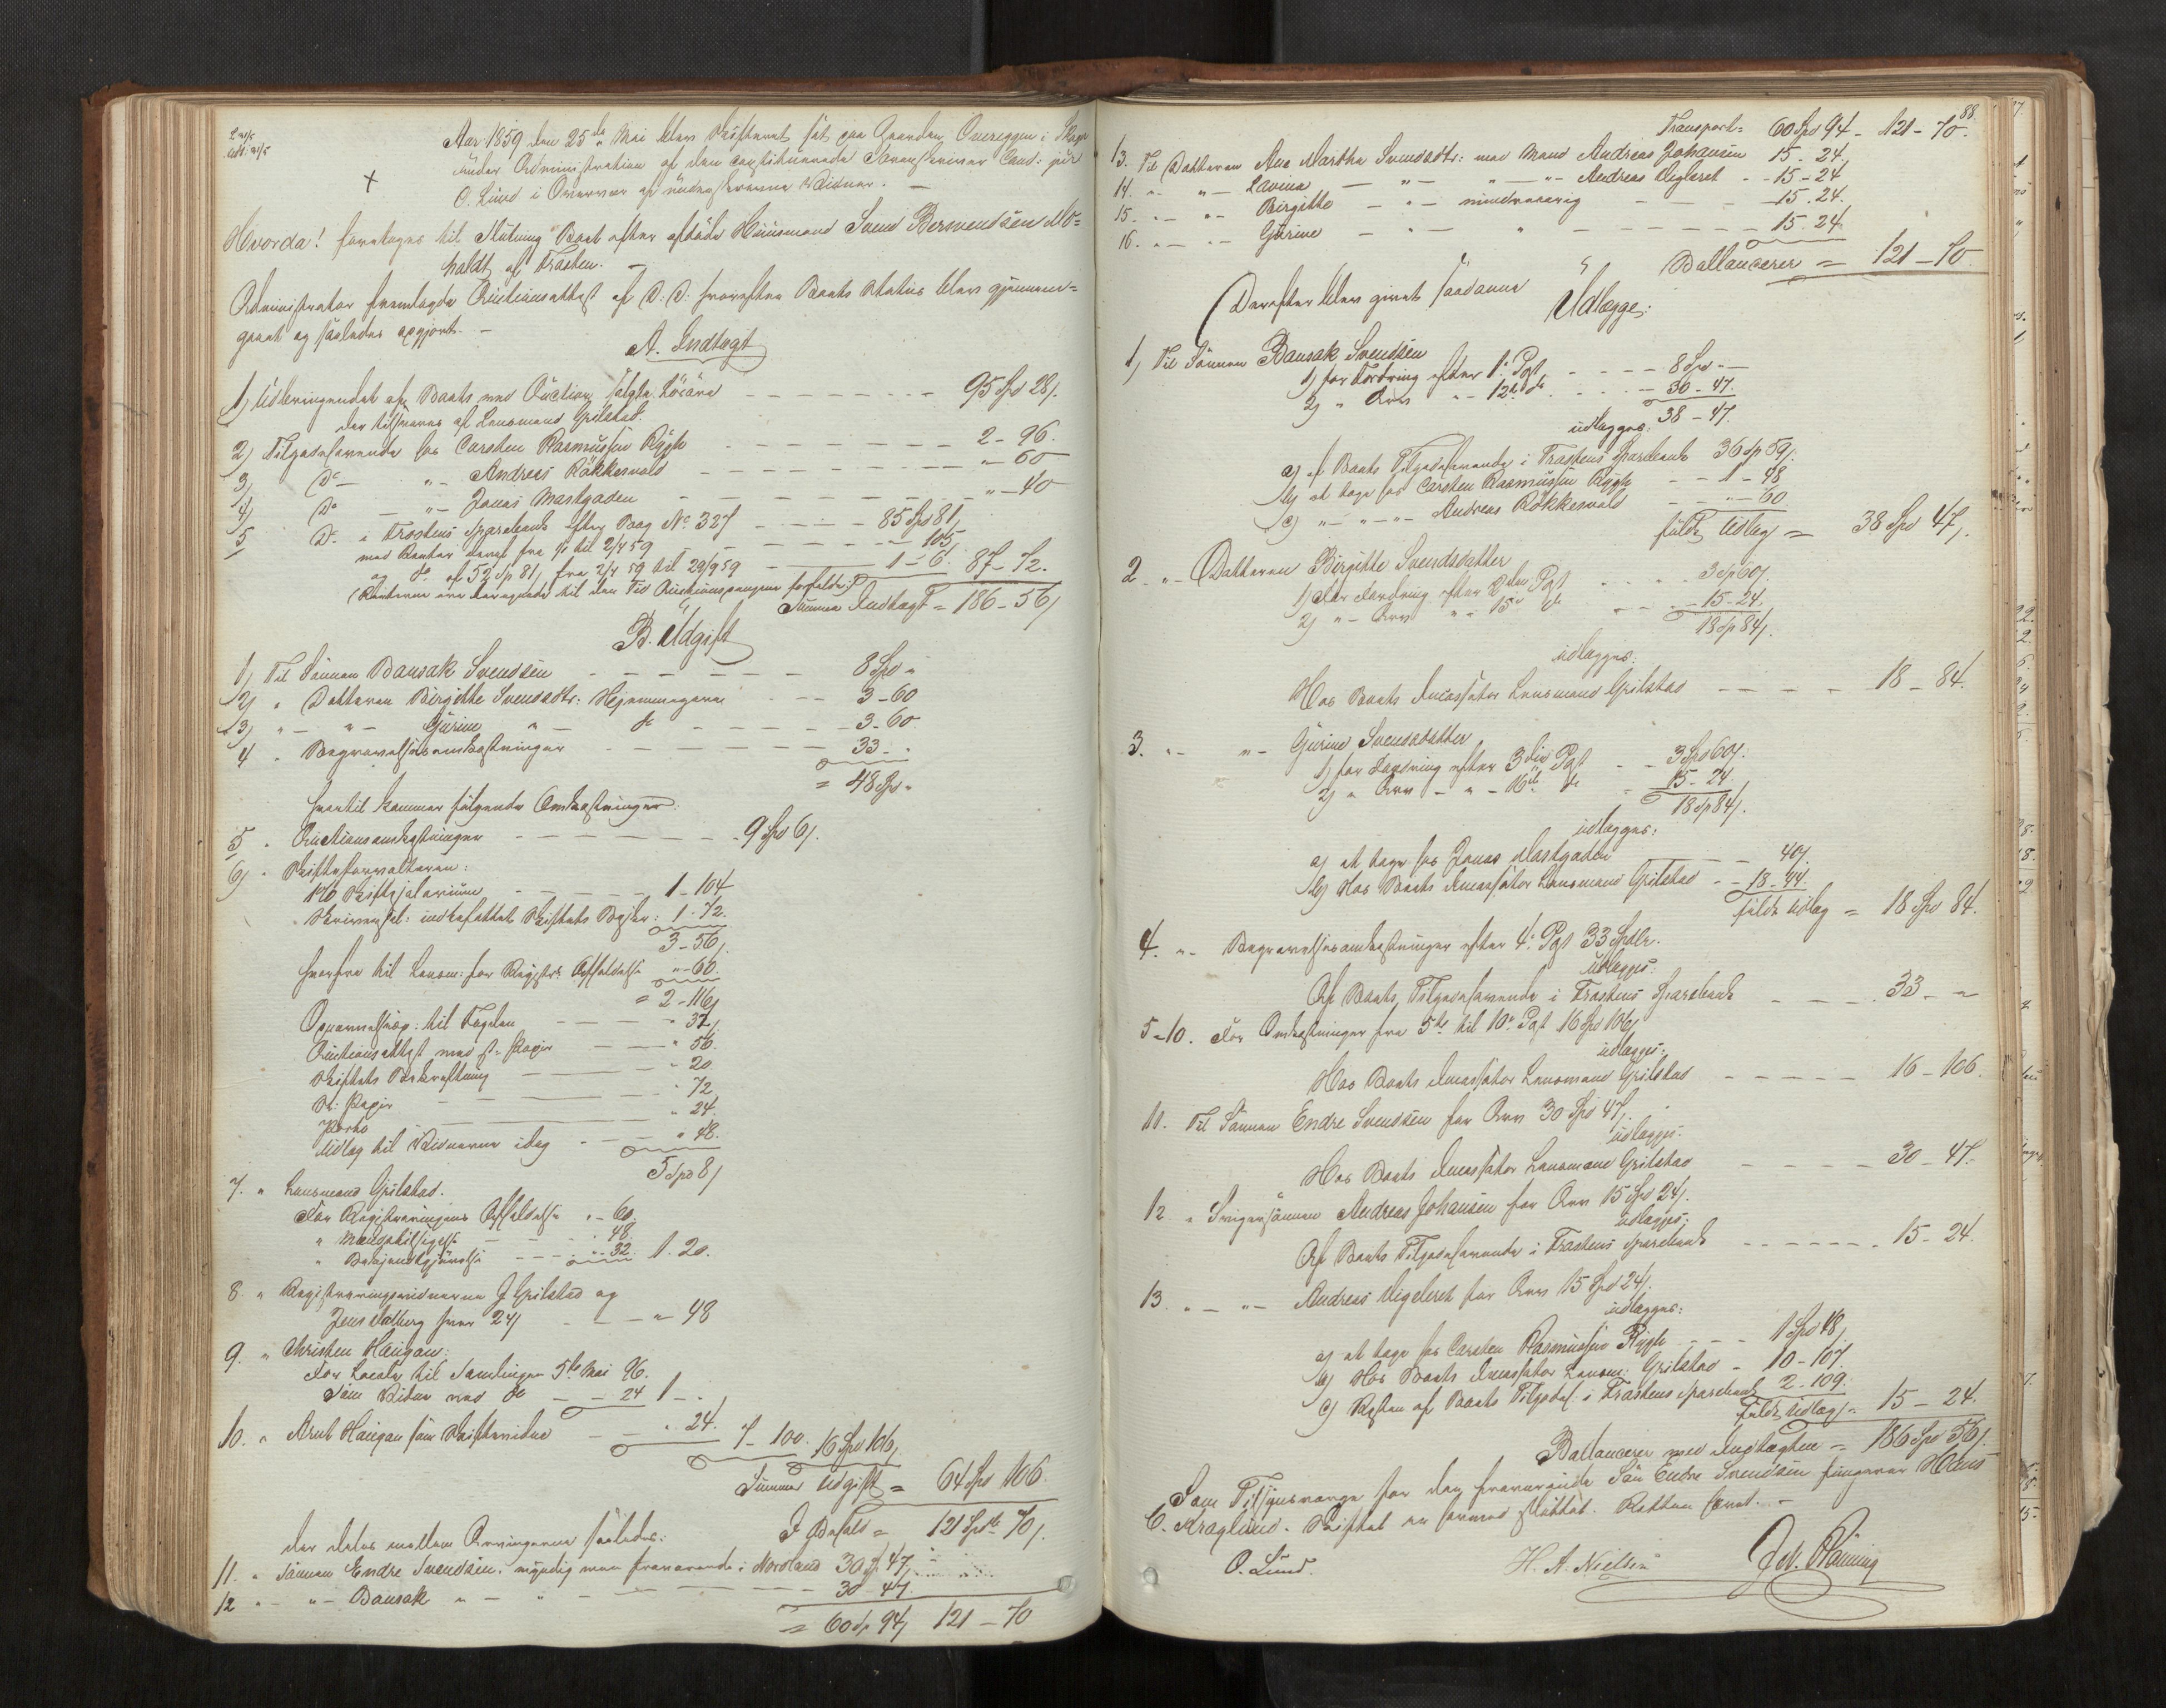 Aar 1859 den 25de Mai blev Skifteret sat paa Gaarden Overeggen i Skogn
under Administration af den constituerede Sorenskriver Cand: jur
O. Lund i Overvær af underskrevne Vidner. —
Hvorda! foretoges til Slutning Boet efter afdøde Huusmand Svend Bersvendsen Mo=
holdt af Frosten. —
Administrator fremlagde Auctionsattest af D: D: hvorefter Boets Status blev gjennem=
gaaet og saaledes opgjort. —
A. Indtægt
1) Udbringendet af Boets ved Auction solgte Løsøre — 95 Spd 28/.
der tilsvares af Lensmand Grilstad.
2) Tilgodehavende hos Carsten Rasmussen Rygh — 2 - 96.
3) Do — " - Andreas Rökkesvald — " - 60
4) Do — " - Jonas Mastgaden — " - 40
5 Do i Frostens Sparebank efter Bog No 327 — 85 Spd 81/
med Renter deraf fra 1/1 til 2/4 59 — " 105/
og do af 52 Sp 81/ fra 2/4 59 til 29/9 59 — 1 - 6. 87 - 72.
(Renterne ere beregnede til den Tid Auctionspengene forfalder)
Summa Indtægt = 186 - 56/
B. Udgift
1) Til Sönnen Bausak Svendsen — 8 Spd "
2) " Datteren Birgitte Svendsdtr: Hjemmegave — 3 - 60
3) " — " - Gurine " — do — 3 - 60
4 " Begravelsesomkostninger — 33 - "
= 48 Spd "
hvortil kommer følgende Omkostninger:
5 " Auctionsomkostninger — 9 Spd 6/.
6) " Skifteforvalteren:
1% Skiftesalarium — 1 - 104
Skriversal: indbefattet Skiftets Beskr: 1 - 72.
3 - 56/
herfra til Lensm: for Registr: Afholdelse " - 60.
= 2 - 116/
Opnævnelsesg: til Fogden — " 32/
Auctionsattest med st: Papir — " 56.
Skiftets Bekræftning — " 20
St: Papir — " 72
Porto — " 24
Udlæg til Vidnerne idag — " 48.
5 Spd 8/
7. " Lensmand Grilstad.
For Registreringens Afholdelse " - 60.
" Mændstilsigelse — " 48.
" Bekjendtgjørelse — " 32. 1. 20.
8. " Registreringsvidnerne J Grilstad og
Jens Vedberg hver 24/ — " 48
9. " Christen Haugan:
For Locale til Samlingen 5te Mai 96.
Som Vidne ved do — 24 1 - "
10. " Arnt Haugan som Skiftevidne — " 24. 7 - 100. 16 Spd 106/
Summa Udgift = 64 Spd 106.
I Behold = 121 Spd 70/.
der deles mellem Arvingerne saaledes:
11. " Sönnen Endre Svendsen, myndig men fraværende i Nordland 30 Sp 47/
12 " — " - Bausak " — " — 30 47.
= 60 Sp 94/ 121 - 70
88.
Transport = 60 Spd 94 - 121 - 70.
13. Til Datteren Ane Martha Svendsdtr: med Mand Andreas Johansen 15 - 24.
14. " — " — Lavina — " — " — " - Andreas Vigleret - 15 - 24
15. " — " — Birgitte — " — mindreaarig — 15 - 24.
16. " — " — Gurine — " — " — 15 - 24
Ballancerer = 121 - 70.
Derefter blev givet saadanne
Udlægge:
1) Til Sönnen Bausak Svendsen
1) for Fordring efter 1ste Pgt — 8 Spd " —
2) " Arv " - 12te do — 30 - 47.
38 - 47.
udlægges:
a) af Boets Tilgodehavende i Frostens Sparebank 36 Sp 59/.
b) at tage hos Carsten Rasmussen Rygh — 1 - 48
c) " — " — " Andreas Rökkesvald — " - 60
fuldt Udlæg = 38 Spd 47/.
2. " - Datteren Birgitte Svendsdatter
1) For Fordring efter 2den Pgt — 3 Sp 60/.
2) " - Arv " - 15de do — 15 - 24.
18 Sp 84/.
udlægges:
Hos Boets Incassator Lensmand Grilstad — 18 - 84.
3. " - " - Gurine Svendsdatter
1) for Fordring efter 3die Pgt — 3 Spd 60/.
2) " Arv — " - 16de do — 15 - 24.
18 Sp 84/.
udlægges:
a) at tage hos Jonas Mastgaden — 40/.
b) Hos Boets Incassator Lensmand Grilstad — 18 - 44
fuldt Udlæg = 18 Spd 84.
4. " - Begravelsesomkostninger efter 4de Pgt 33 Spdlr.
udlægges:
Af Boets Tilgodehavende i Frostens Sparebank — 33 - "
5-10. For Omkostninger fra 5te til 10de Pgt 16 Spd 106/
udlægges:
Hos Boets Incassator Lensmand Grilstad — 16 - 106.
11. Til Sönnen Endre Svendsen for Arv 30 Spd 47/.
udlægges:
Hos Boets Incassator Lensmand Grilstad — 30 - 47.
12 " Svigersönnen Andreas Johansen for Arv 15 Spd 24/.
udlægges:
Af Boets Tilgodehavende i Frostens Sparebank — 15 - 24.
13. " — " — Andreas Vigleret for Arv 15 Spd 24/.
udlægges:
a) at tage hos Carsten Rasmussen Rygh — 1 Spd 48/
b) Hos Boets Incassator Lensm: Grilstad - 10 - 107.
c) Resten af Boets Tilgodeh. i Frostens Sparebank 2 - 109.
fuldt Udlæg = 15 - 24.
Ballancerer med Indtægten = 186 Spd 56/.
Som Tilsynsværge for den fraværende Søn Endre Svendsen fungerer Hans
C. Kraglund. Skiftet er hermed sluttet. Retten hævet. —
O. Lund. H. A. Nielsen Joh. Rönning